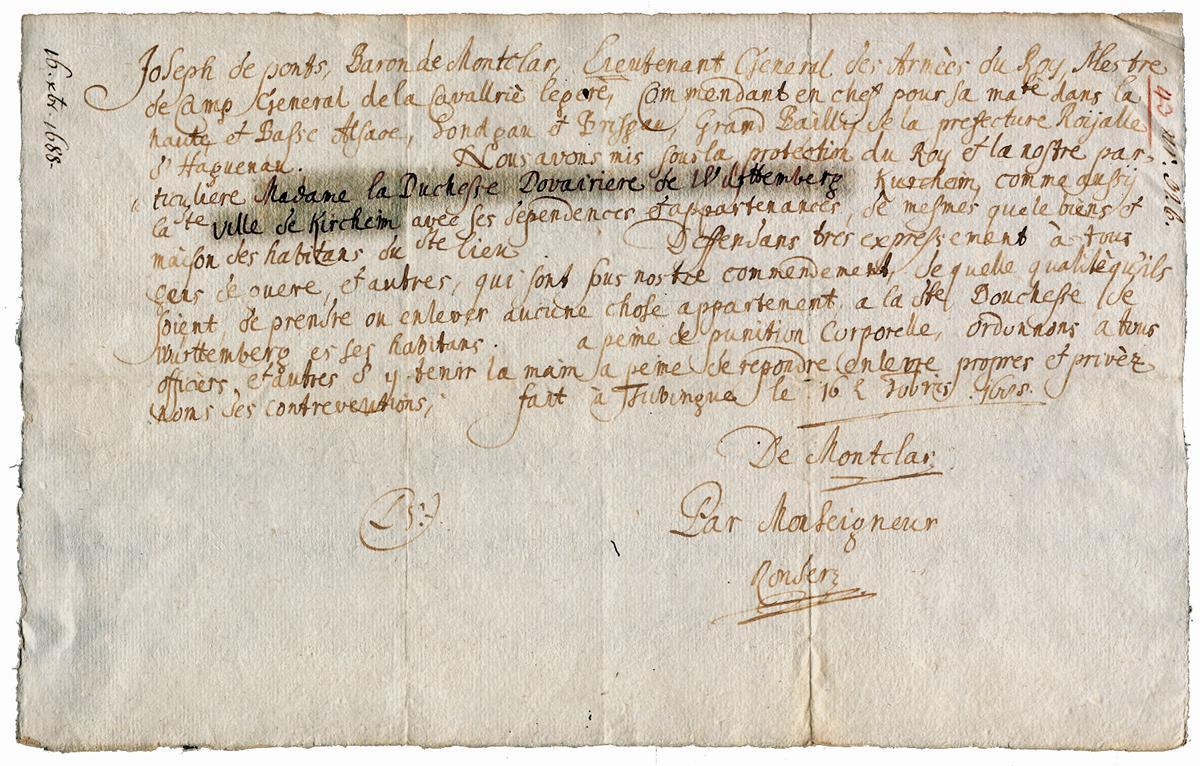 16. xbr. 1688.
Joseph de ponts, Baron de Montclar, Lieutenant General des Armèes du Roy, Mestre
de Camp General de la Cavallriè legere, Commendant en chef pour sa maté dans la
haute et Basse Alsace, Sondgau et Brisgau, Grand Bailly de la prefecture Roijalle
d'Haguenau. Nous avons mis sous la protection du Roy et la nostre par-
ticuliere Madame la Duchesse Dovairiere de Württemberg Kircheim, comme aussij
la ste ville de Kircheim avec ses dependences et appartenances, de mesmes que le biens et
maison des habitans du ste lieu Deffendans tres expressement à tous
gens de guere, et autres, qui sont sous nostre commendement, de quelle qualitè qu'ils
soient, de prendre ou enlever aucune chose appartement a la ste Douchesse de
Württemberg es ses habitans. a peine de punition Corporelle, ordonnons a tous
officiers, et autres d'y tenir la main a peine de repondre en propres et privèz
noms des contreventions, fait à Thubingue le 16 1688.
De Montclar.
Par Monseigneur